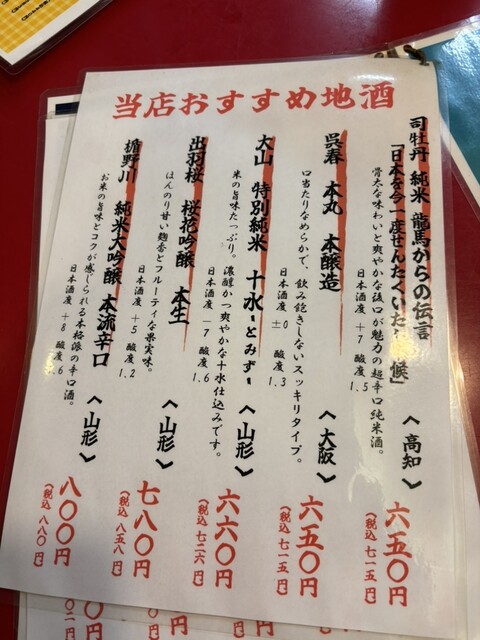 当店おすすめ地酒
司牡丹 純米 龍馬からの伝言
「日本を今一度せんたくいたし候」
骨太な味わいと爽やかな後口が魅力の超辛口純米酒。
日本酒度 +7 酸度 1.5
〈高知〉
六五〇円
(税込 七一五円)
呉春 本丸 本醸造
口当たりなめらかで、飲み飽きしないスッキリタイプ。
日本酒度 ±0 酸度 1.3
〈大阪〉
六五〇円
(税込 七一五円)
大山 特別純米 十水-とみず-
米の旨味たっぷり。濃醇かつ爽やかな十水仕込みです。
日本酒度 -7 酸度 1.6
〈山形〉
六六〇円
(税込 七二六円)
出羽桜 桜花吟醸 本生
ほんのり甘い麹香とフルーティな果実味。
日本酒度 +5 酸度 1.2
〈山形〉
七八〇円
(税込 八五八円)
楯野川 純米大吟醸 本流辛口
お米の旨味とコクが感じられる本格派の辛口酒。
日本酒度 +8 酸度 1.6
〈山形〉
八〇〇円
(税込 八八〇円)